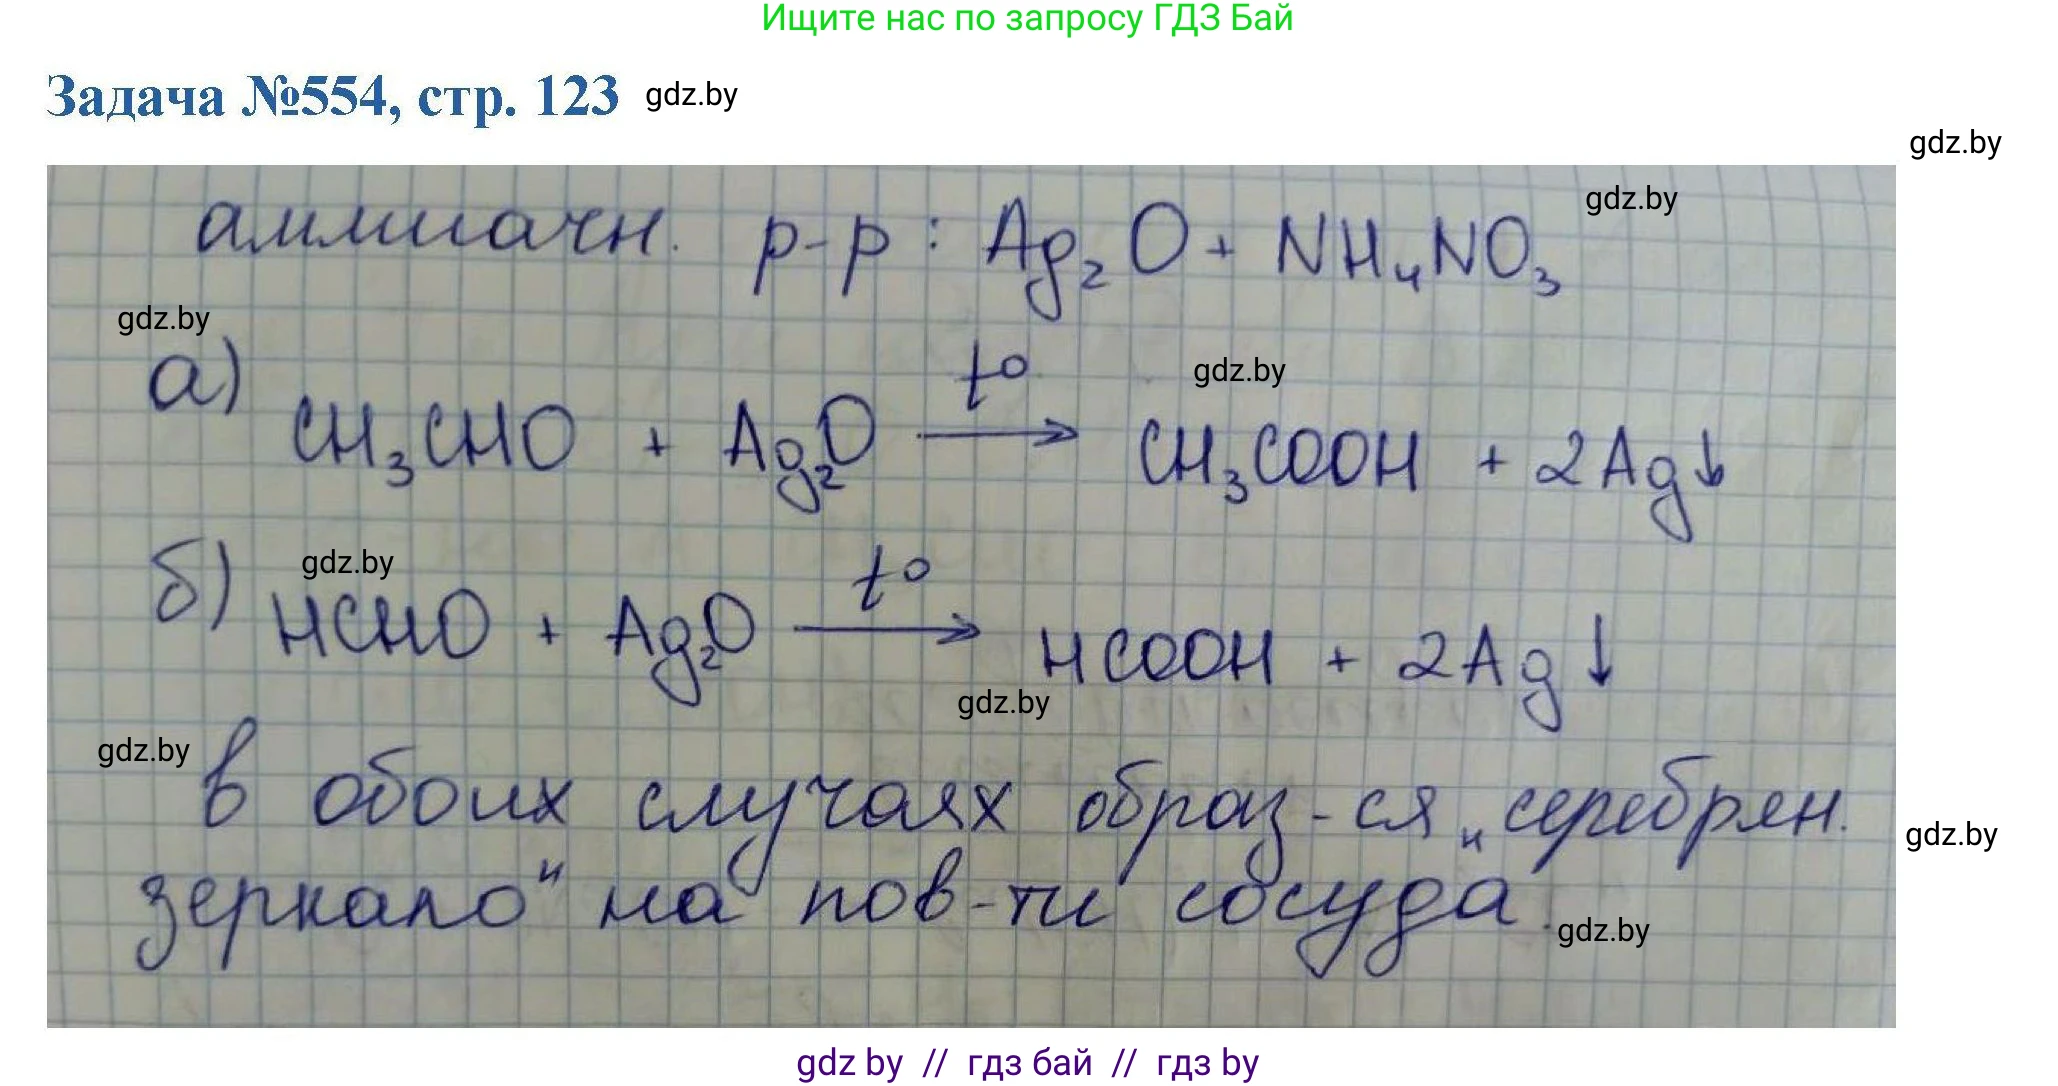 Ищите нас по запросу ГДЗ Бай
Задача №554, стр. 123 gdz.by
gdz.by
аммиачн. р-р : Ag₂O + NH₄NO₃ gdz.by
gdz.by
а) CH₃CHO + Ag₂O t° → CH₃COOH + 2Ag↓
gdz.by
б) HCHO + Ag₂O t° → HCOOH + 2Ag↓
gdz.by
gdz.by
gdz.by
в обоих случаях образ-ся „серебрян.
gdz.by
зеркало" на пов-ти сосуда.
gdz.by
gdz by // гдз бай // гдз by